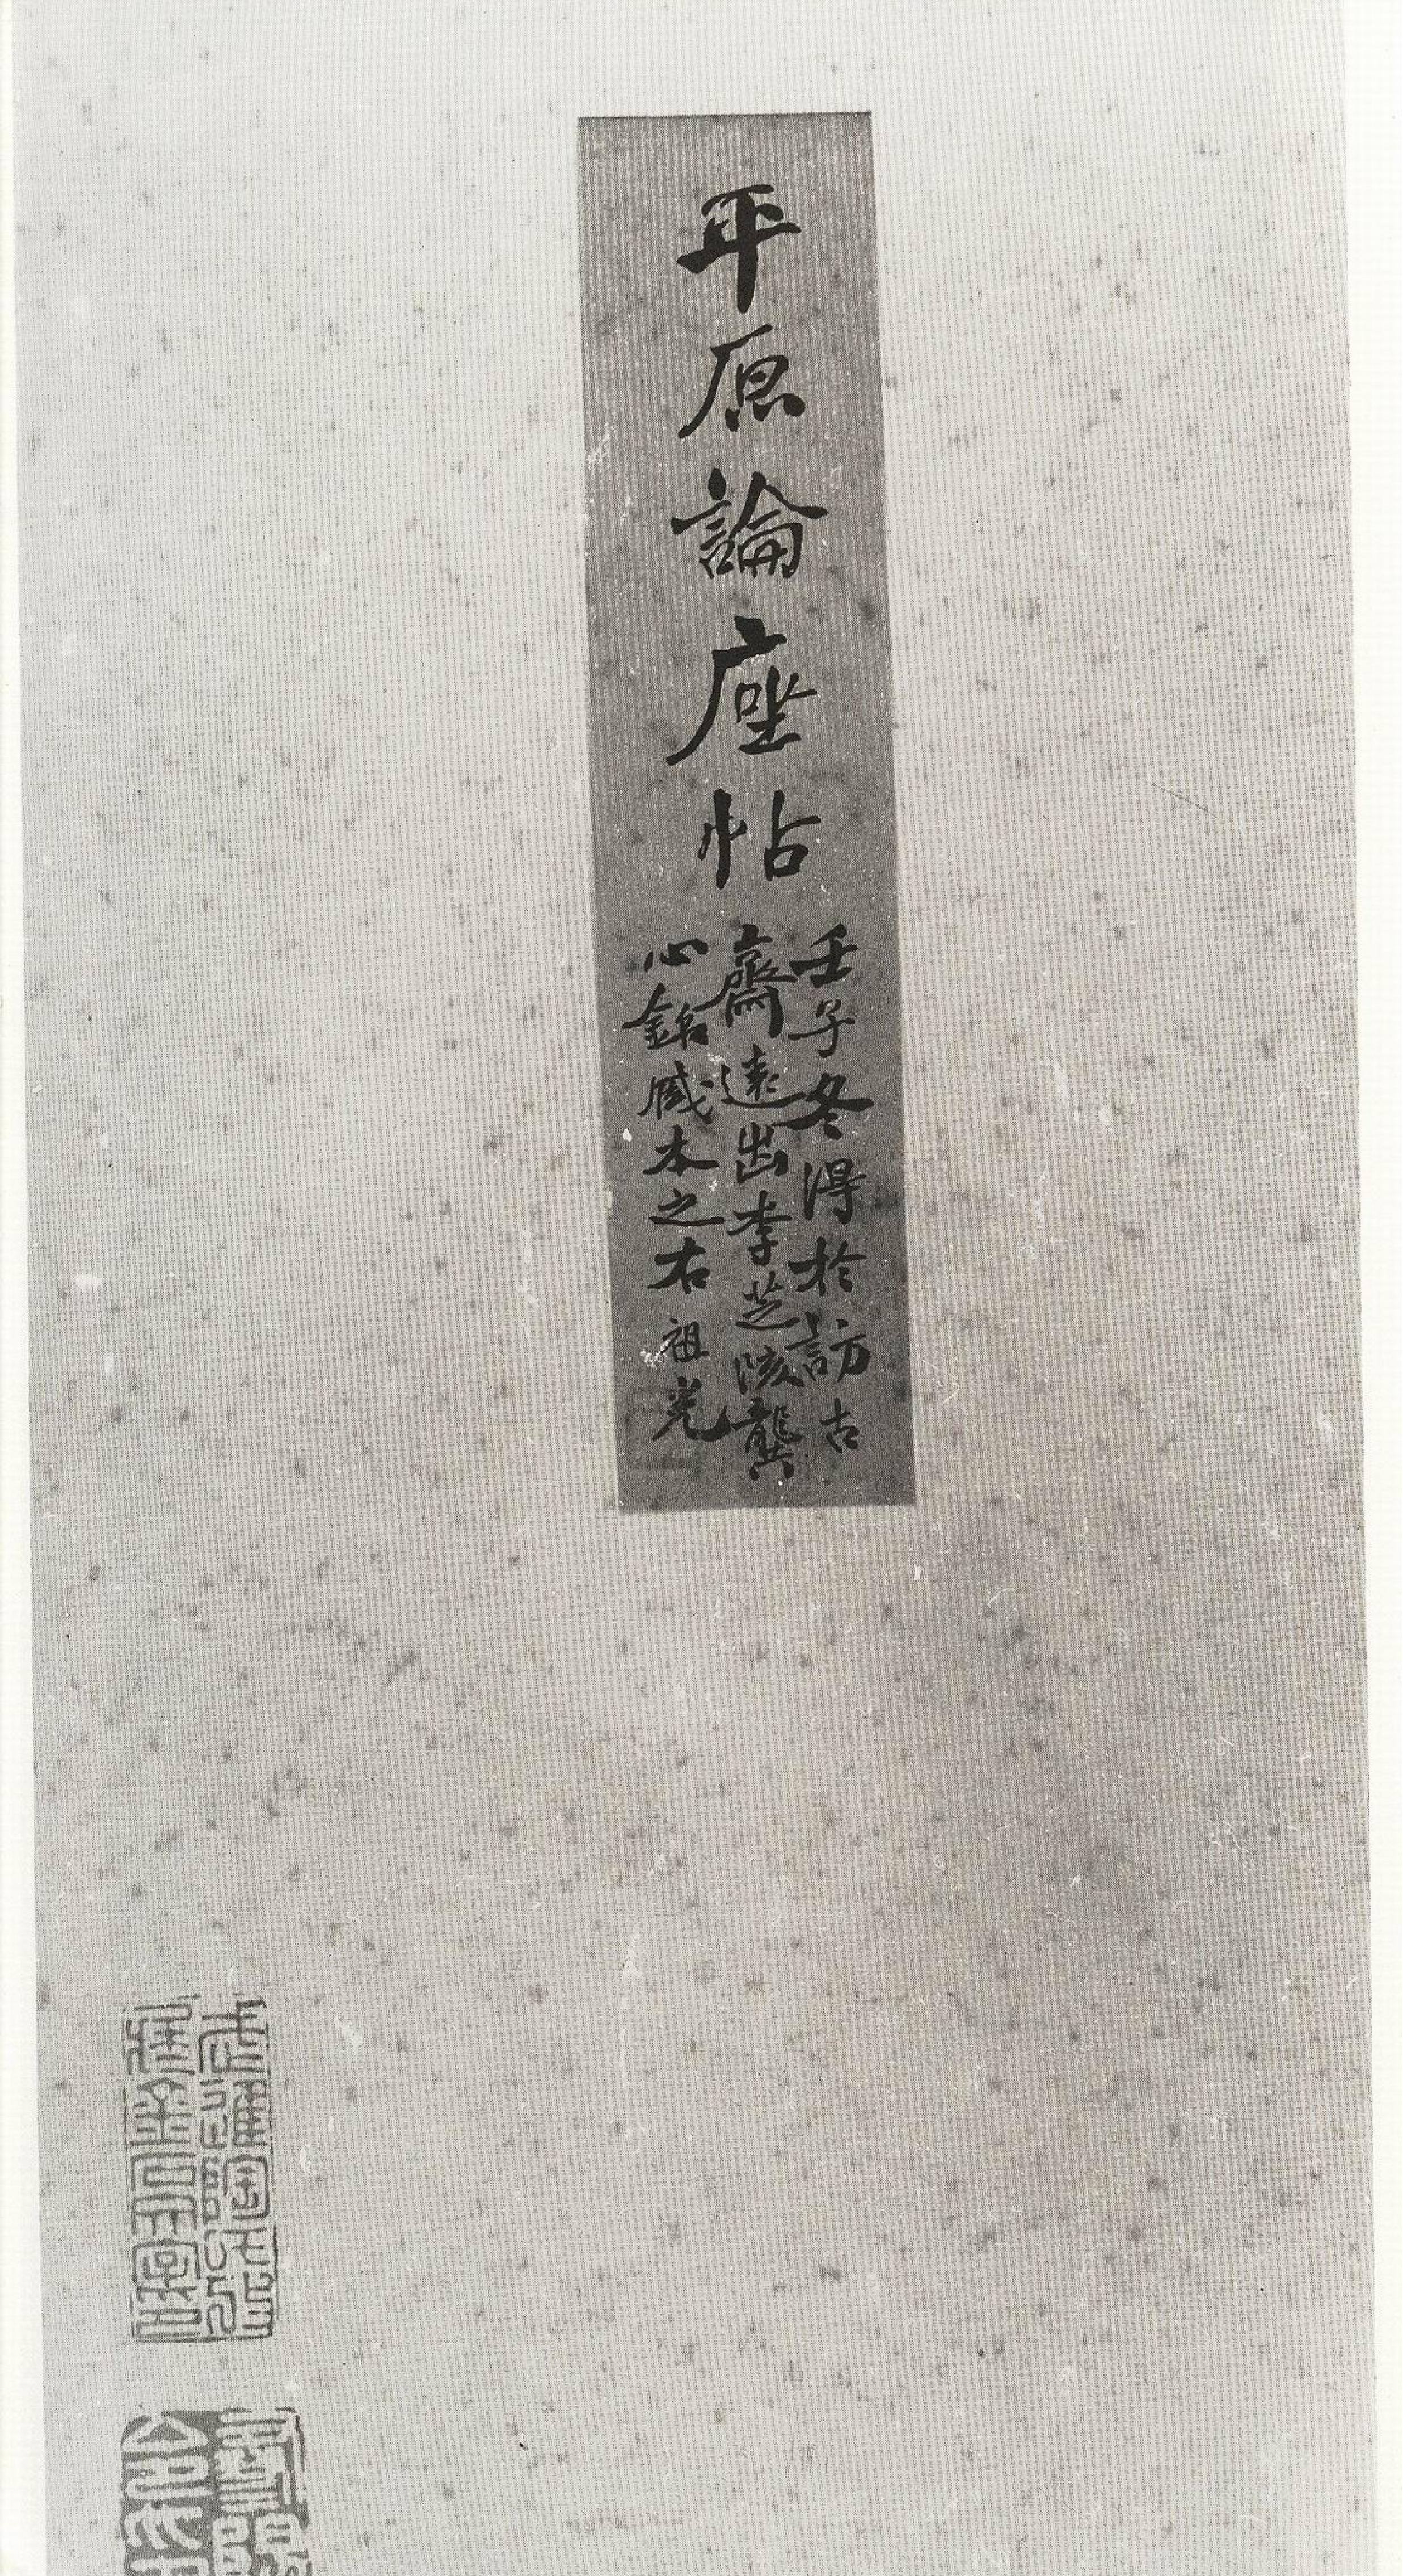 平原論座帖
壬子冬得於訪古
齋遠出李芝陔龔
心銘臧本之右 祖光